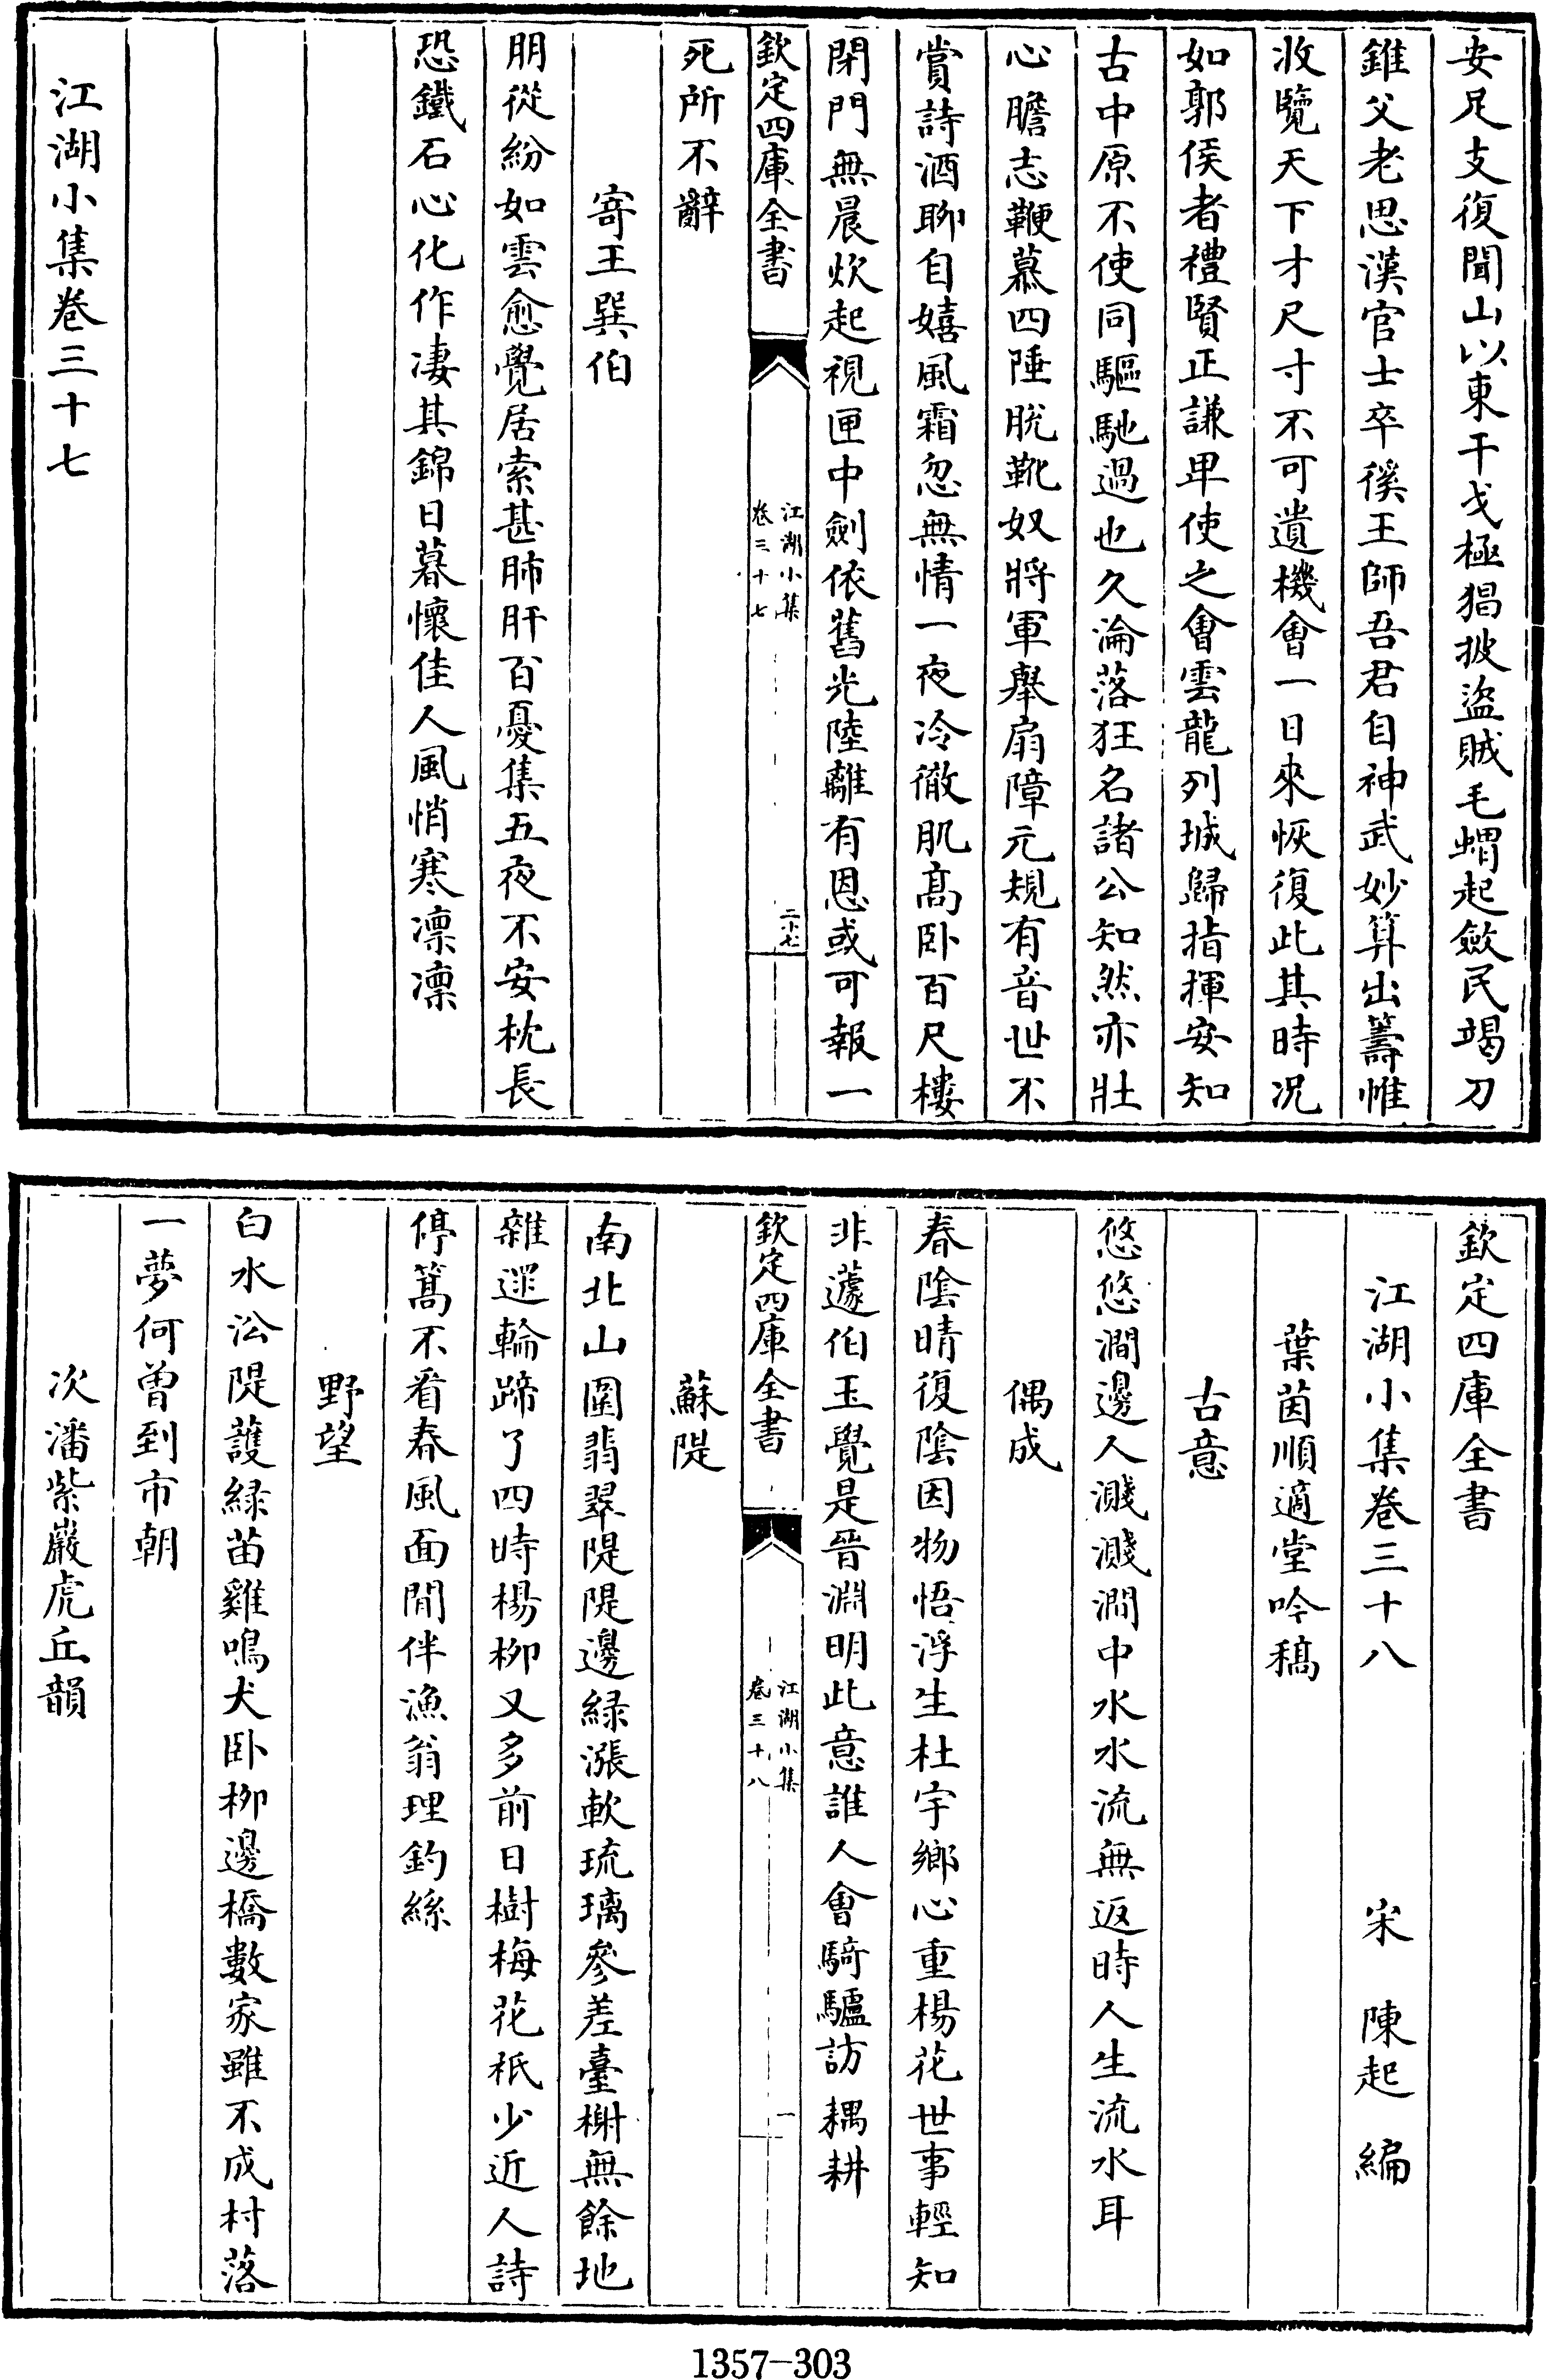 安足支復聞山以東干戈極猖披盜賊毛蝟起斂民竭刀
錐父老思漢官士卒徯王師吾君自神武妙算出籌帷
收覽天下才尺寸不可遺機會一日來恢復此其時况
如郭侯者禮賢正謙卑使之會雲龍列城歸指揮安知
古中原不使同驅馳過也久淪落狂名諸公知然亦壯
心膽志鞭慕四陲脫靴奴將軍舉扇障元規有音世不
賞詩酒聊自嬉風霜忽無情一夜冷徹肌高卧百尺樓
閉門無晨炊起視匣中劍依舊光陸離有恩或可報一
欽定四庫全書
江湖小集
卷三十七
二十七
死所不辭
寄王巽伯
朋從紛如雲愈覺居索甚肺肝百憂集五夜不安枕長
恐鐵石心化作淒其錦日暮懷佳人風悄寒凛凛
江湖小集卷三十七
欽定四庫全書
江湖小集卷三十八 宋 陳起 編
葉茵順適堂吟稿
古意
悠悠澗邊人濺濺澗中水水流無返時人生流水耳
偶成
春陰晴復陰因物悟浮生杜宇鄉心重楊花世事輕知
非蘧伯玉覺是晉淵明此意誰人會騎驢訪耦耕
欽定四庫全書
江湖小集
卷三十八
一
蘇隄
南北山圍翡翠隄隄邊緑漲軟琉璃參差臺榭無餘地
雜遝輪蹄了四時楊柳又多前日樹梅花祇少近人詩
停篙不看春風面閒伴漁翁理釣絲
野望
白水㳂隄護緑苗雞鳴犬卧柳邊橋數家雖不成村落
一夢何曽到市朝
次潘紫巖虎丘韻
1357-303